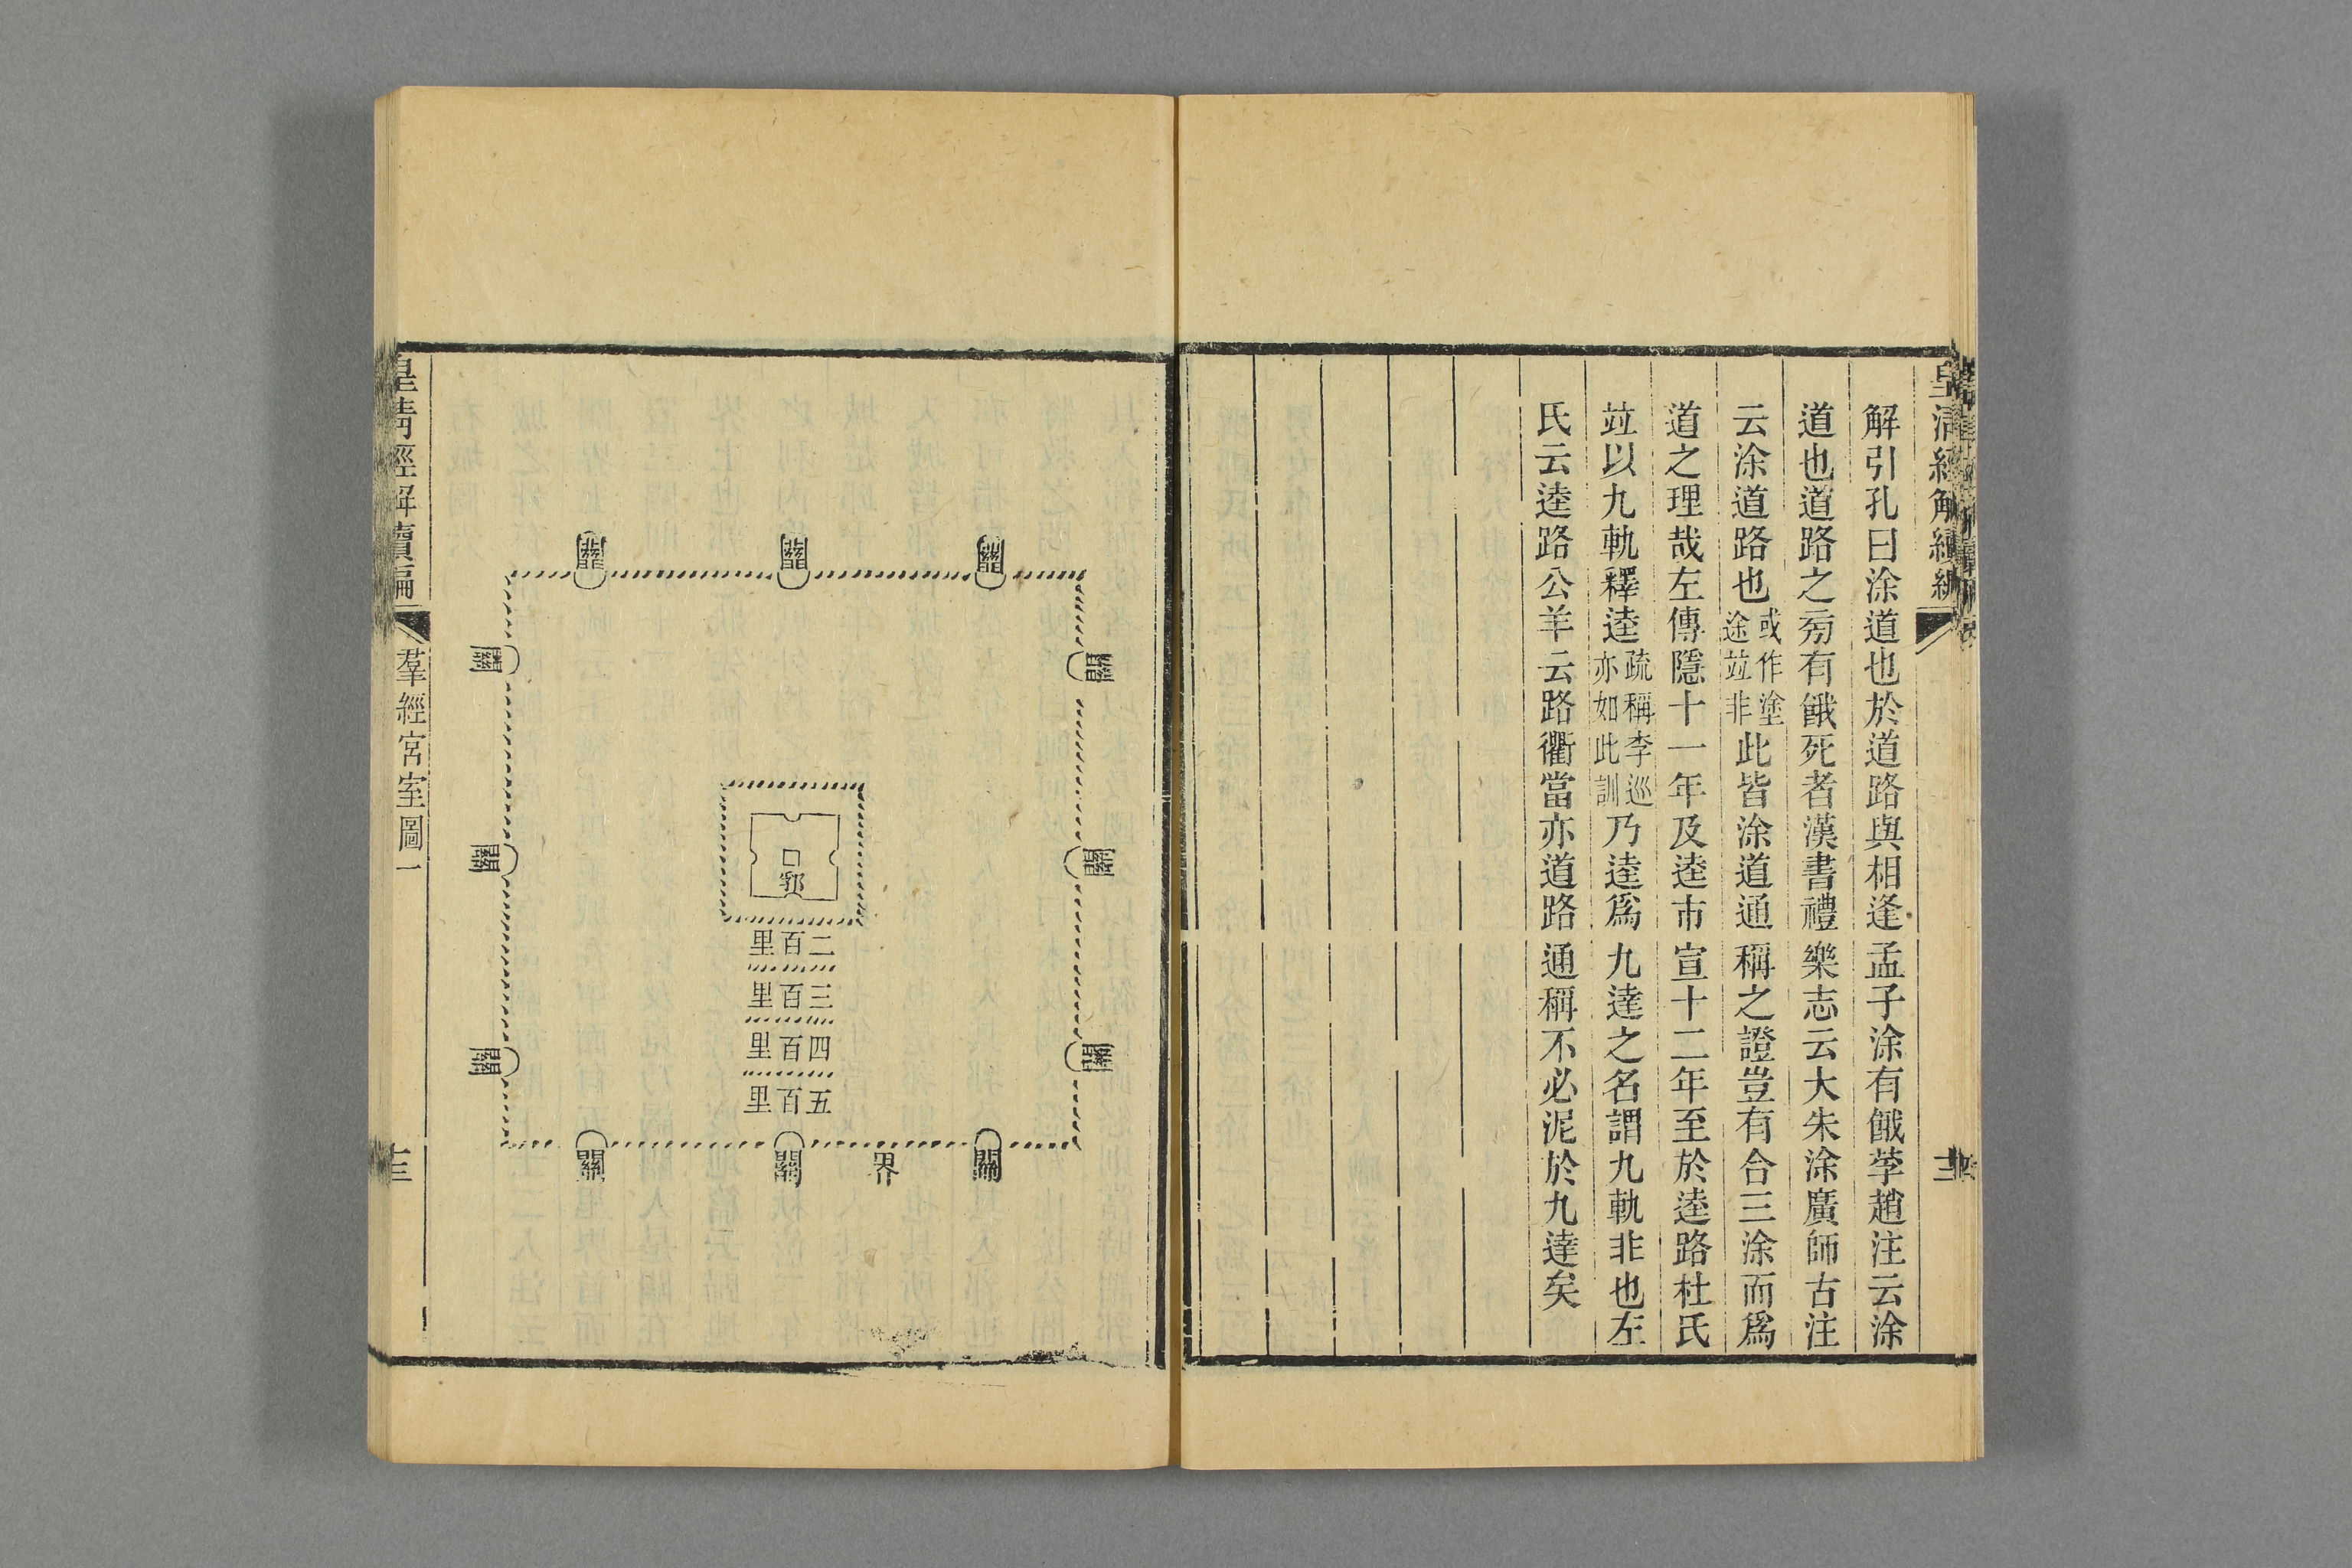 皇清經解續編
解引孔曰涂道也於道路與相逢孟子涂有餓莩趙注云涂
道也道路之旁有餓死者漢書禮樂志云大朱涂廣師古注
云涂道路也或作塗途竝非此皆涂道通稱之證豈有合三涂而爲
道之理哉左傳隱十一年及逵市宣十二年至於逵路杜氏
竝以九軌釋逵疏稱李巡亦如此訓乃逵爲九達之名謂九軌非也左
氏云逵路公羊云路衢當亦道路通稱不必泥於九達矣
關
關
關
關
關
關
關
關
關
關
關
關
郛
二百里
三百里
四百里
五百里
界
皇清經解續編
羣經宮室圖一